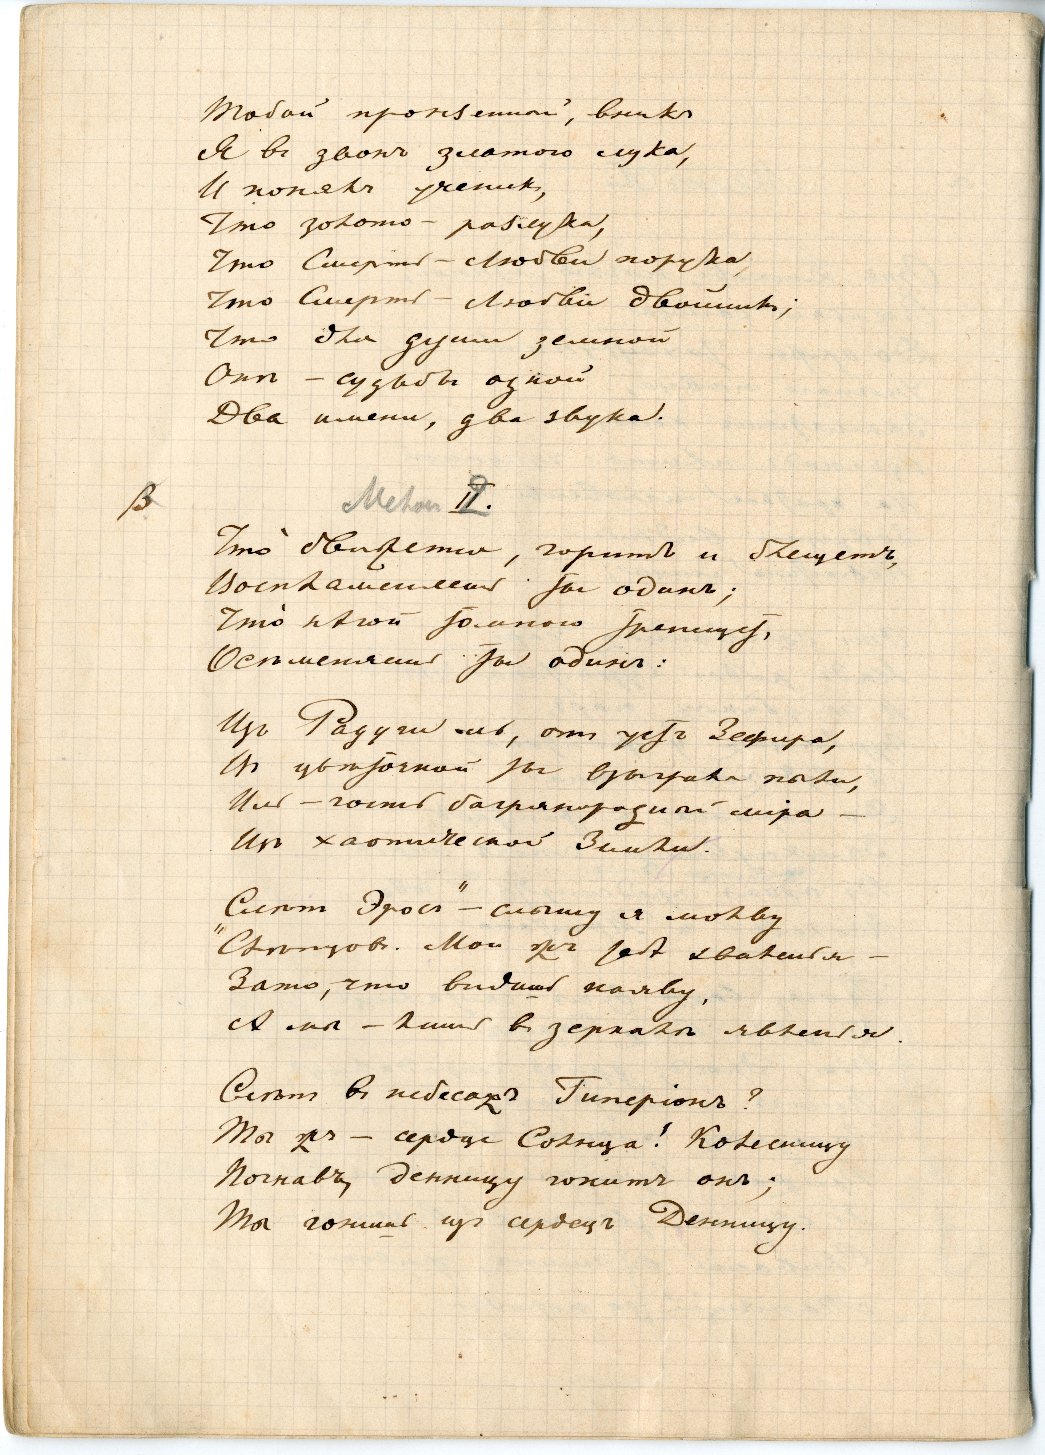 Тобой пронзенный, вникъ
Я въ звонъ златого лука,
И понялъ ученикъ,
Что золото – разлука,
Что Смерть – Любви порука,
Что Смерть – Любви двойникъ;
Что для души земной
Онѣ – судьбы одной
Два имени, два звука.
β
Мелом II.
Что̀ движется, горитъ и блещетъ,
Воспламеняешь ты одинъ;
Что̀ нѣгой томною трепещетъ,
Осѣменяешь ты одинъ:
Изъ Радуги ль, отъ устъ Зефира,
Изъ цвѣточной ты взыгралъ пыли,
Иль – гость багрянородный міра –
Изъ хаотической Земли.
Слѣпъ Эросъ" – слышу я молву
"Слѣпцовъ. Мои жъ тебѣ хваленья –
Зато, что видишь наяву,
А мы – лишь въ зеркалѣ явленья.
Слѣпъ въ небесахъ Гиперіонъ?
Ты жъ – сердце Солнца! Колесницу
Погнавъ, денницу гонитъ онъ;
Ты гонишь изъ сердецъ Денницу.